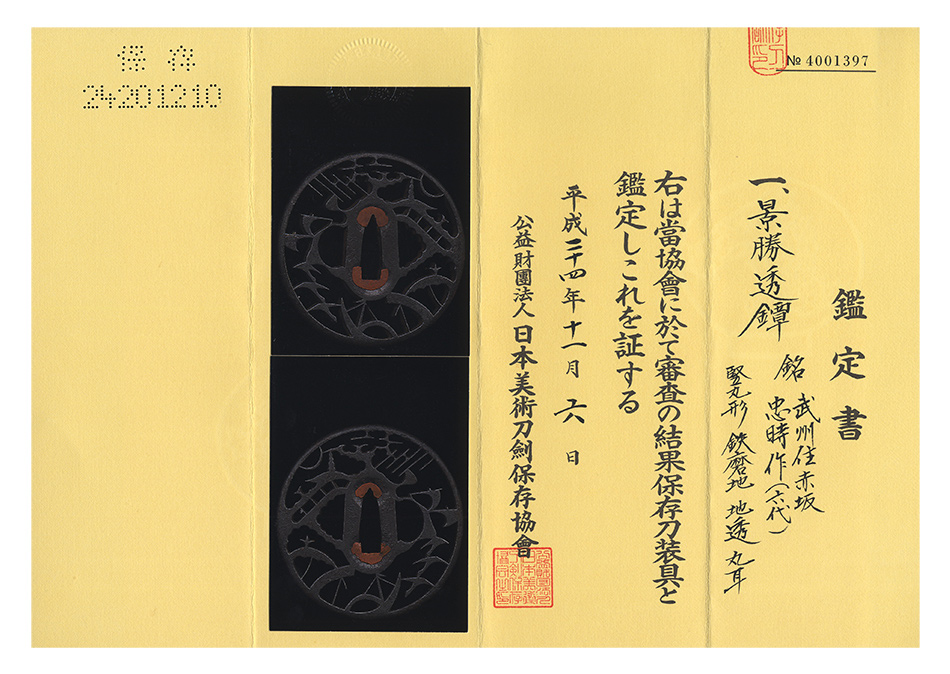 № 4001397
鑑定書
一、景勝透鐔
銘 武州住赤坂
忠時作(六代)
竪丸形 鉄磨地 地透 丸耳
右は當協會に於て審査の結果保存刀装具と
鑑定しこれを証する
平成二十四年十一月六日
公益財團法人 日本美術刀劍保存協會
保存
24201210